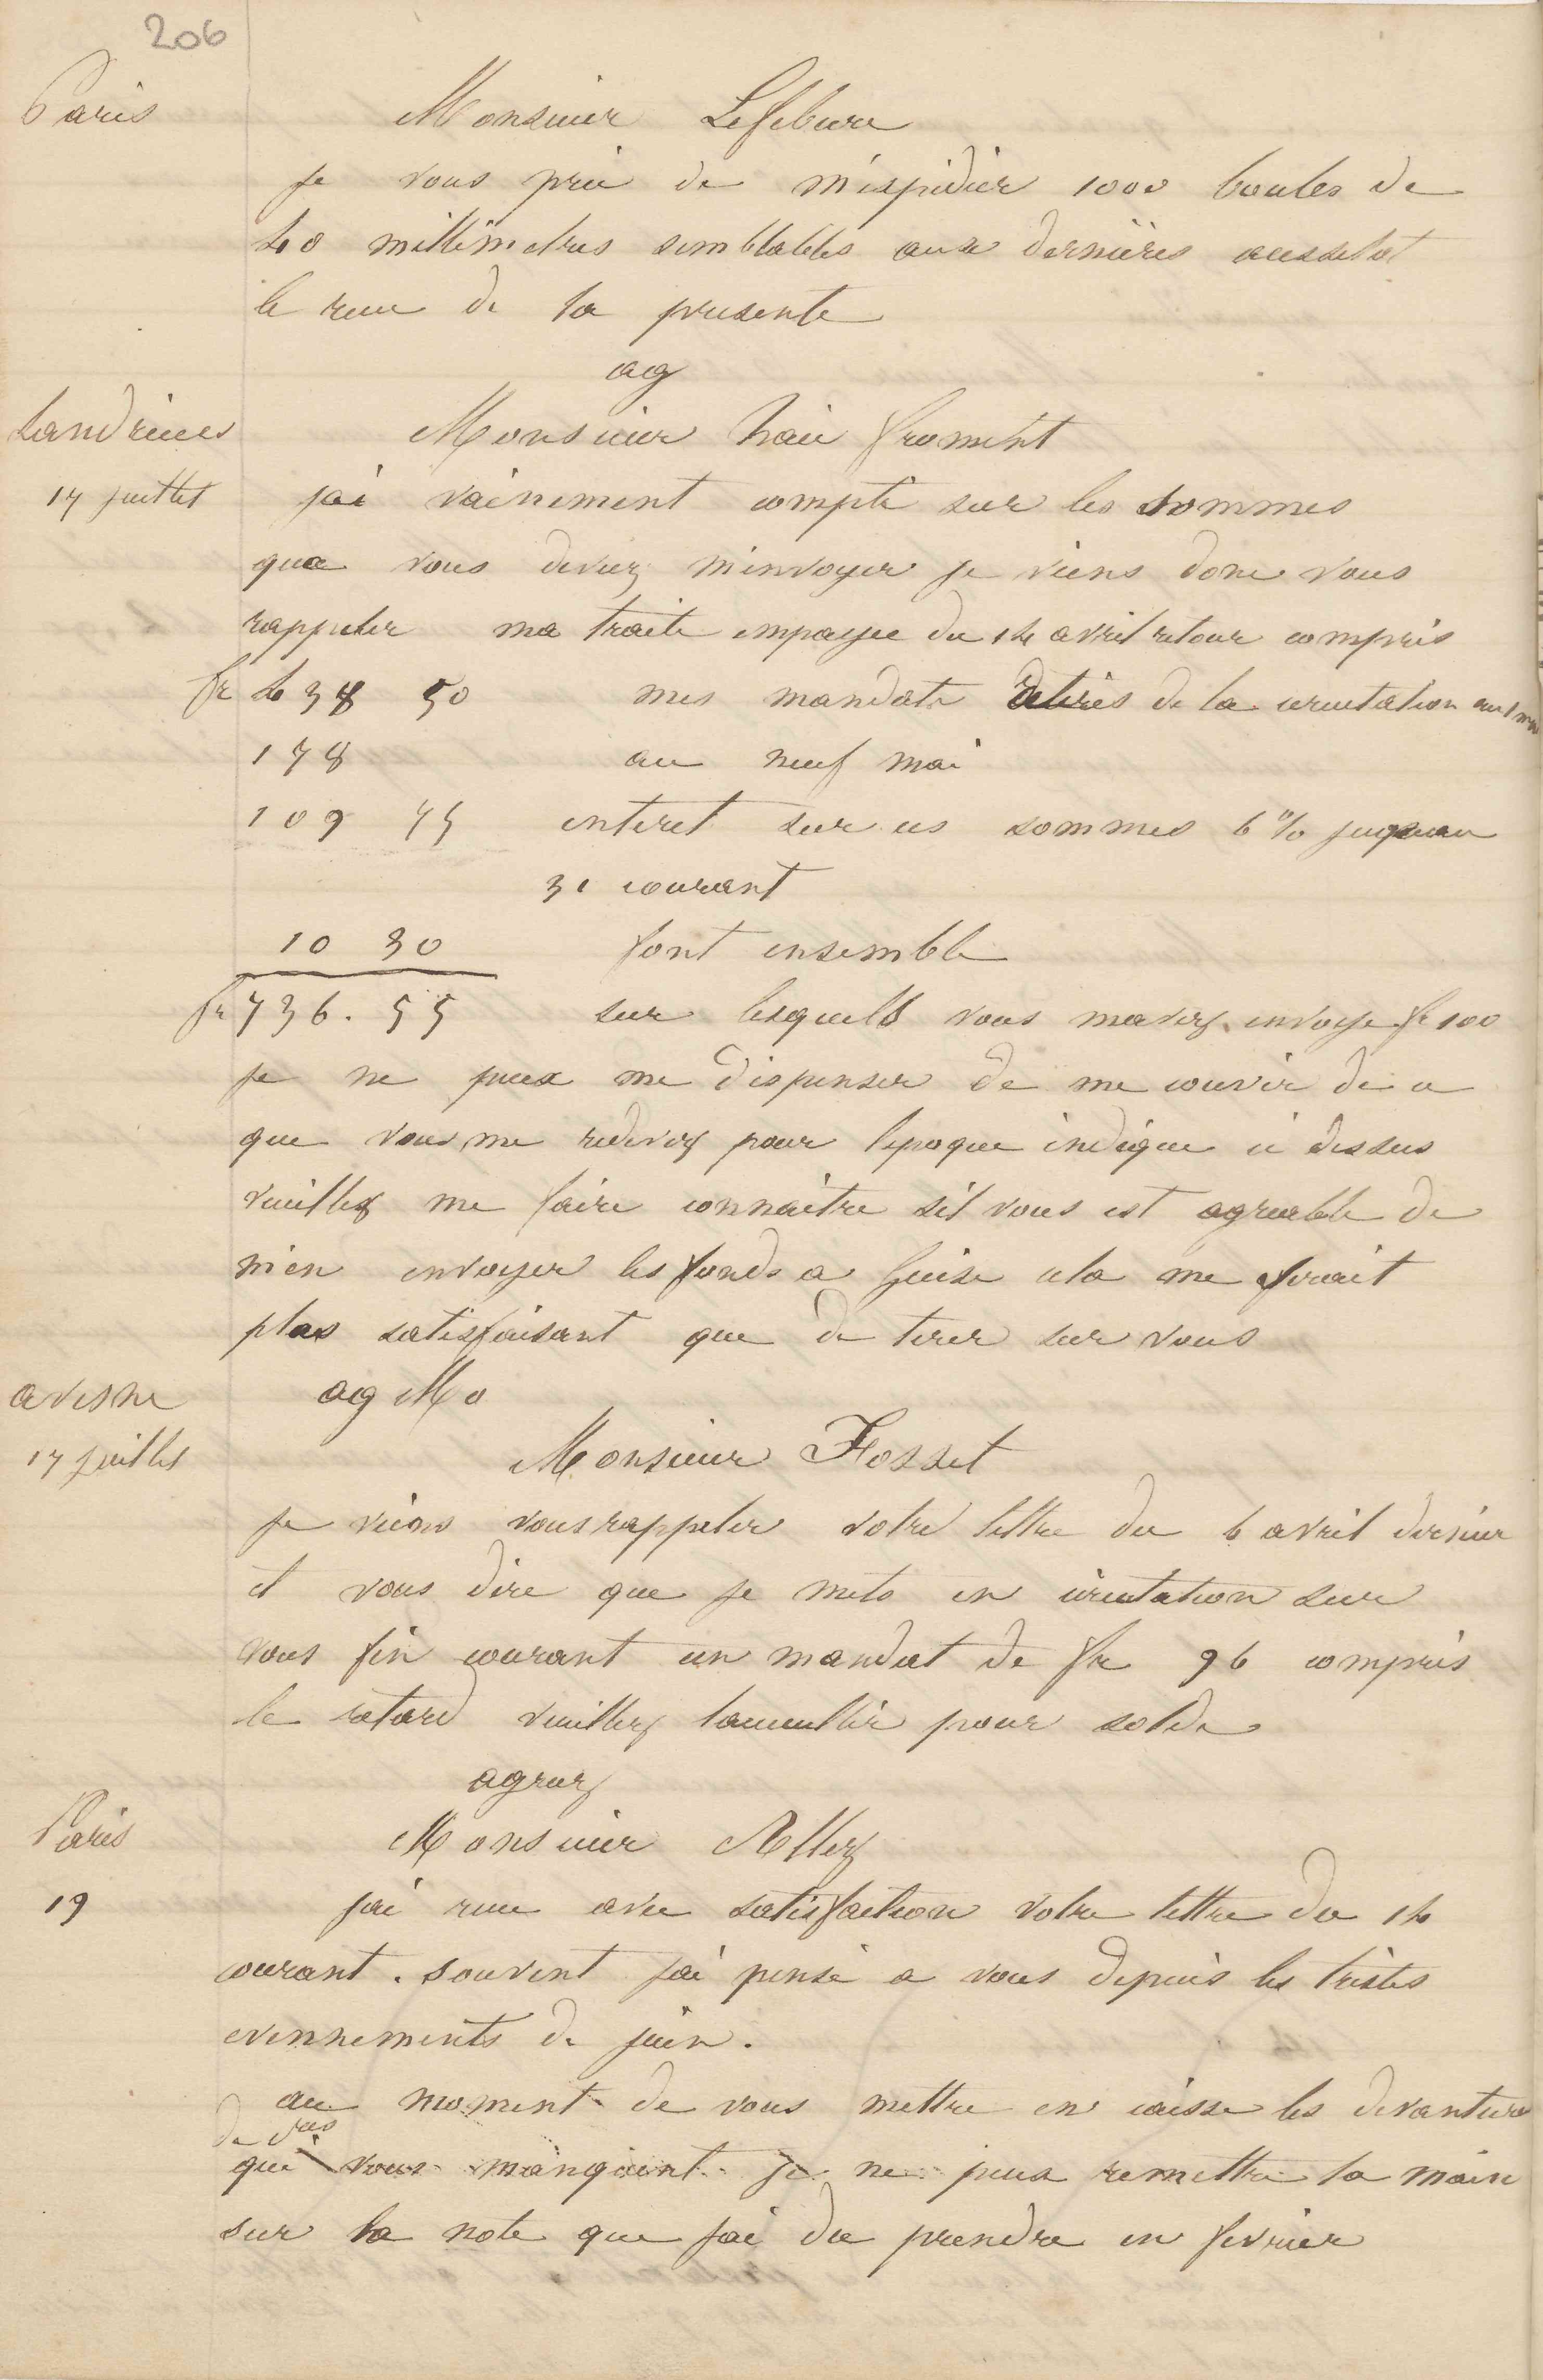 206
Paris
Monsieur Lefebure
je vous prie de m'éxpidier 1000 boules de
40 millimetres semblables aux dernières aussitot
le reçu de la presente
ag
Landrecies
17 juillet
Monsieur froment
jai vainement compté sur les sommes
que vous deviez m'envoyer je viens donc vous
rappeler ma traite impayee du 14 avril retour compris
fr 438 50 mes mandats de la circulation au 1 mai
178 au neuf mai
109 75 interet sur ces sommes 6 % jusquau
31 courant
10 30 font ensemble
fr 736. 55 sur lesquells vous mavez envoye fr 100
je ne peux me dispenser de me couvrir de ce
que vous me redevez pour lepoque indique ci dessus
veuillez me faire connaitre sil vous est agreable de
m'en envoyer les fonds a Guise cela me serait
plus satisfaisant que de tirer sur vous
ag Mo
avesne
17 juillet
Monsieur Fosset
je viens vous rappeler votre lettre du 6 avril dernier
et vous dire que je mets en circulation sur
vous fin courant un mandat de fr 96 compris
le retard veuillez laccueillir pour solde
agreez
Paris
19
Monsieur Allez
jai recu avec satisfaction votre lettre du 14
courant. souvent jai pensé a vous depuis les tristes
evennements de juin.
au moment de vous mettre en caisse les devantures
de vos
qui vous manquent je ne peux remettre la main
sur la note que jai du prendre en fevrier